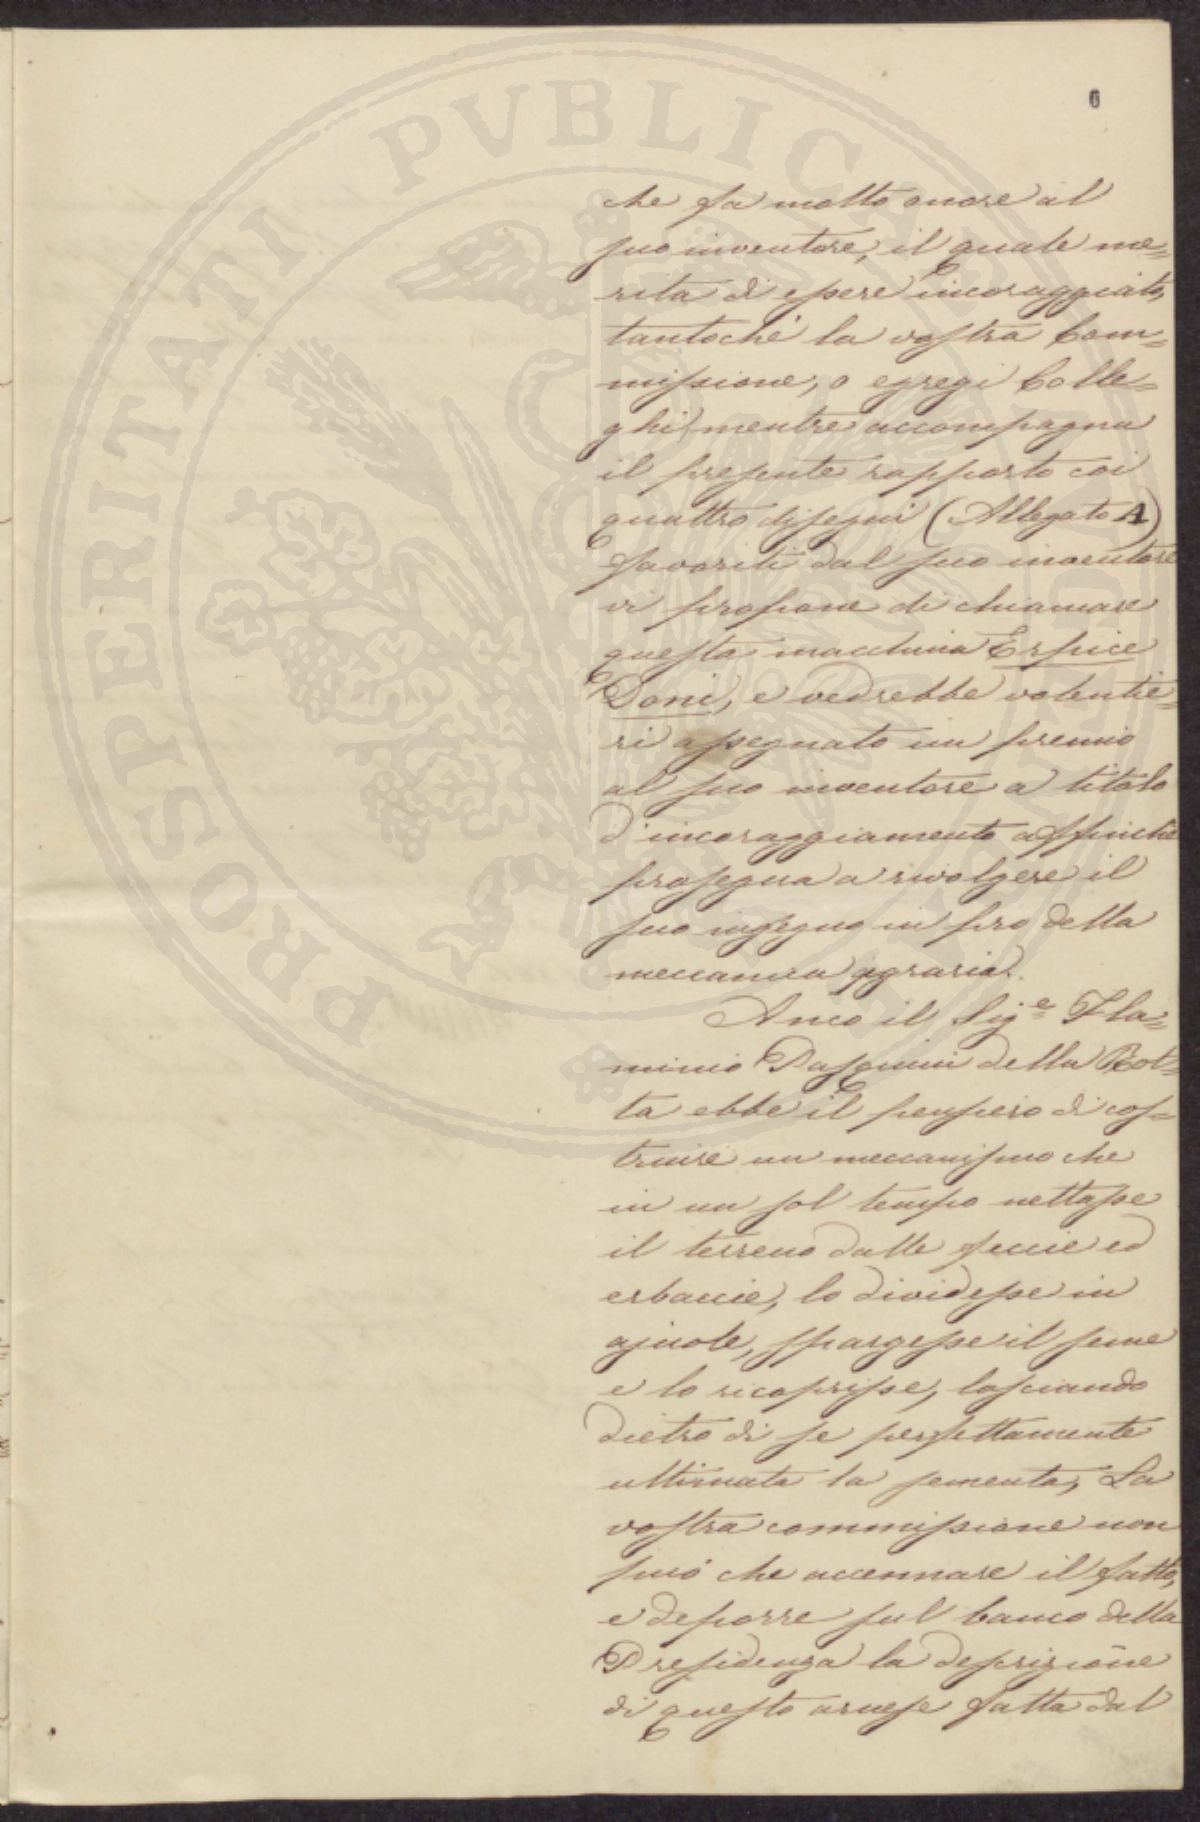 6
PROSPERITATI PVBLICAE AVGENDAE
che fa molto onore al
suo inventore, il quale me=
rita di essere incoraggiato,
tantochè la vostra Com=
missione, o egregi Colle=
ghi, mentre accompagna
il presente rapporto coi
quattro disegni (Allegato A)
favoriti dal suo inventore
vi propone di chiamare
questa macchina Erpice
Doni, e vedrebbe volentie=
ri assegnato un premio
al suo inventore a titolo
d'incoraggiamento affinchè
prosegua a rivolgere il
suo ingegno in pro della
meccanica agraria.
Anco il Sig.e Fla=
minio Pasquini della Rot=
ta ebbe il pensiero di cos=
truire un meccanismo che
in un sol tempo nettasse
il terreno dalle feccie ed
erbaccie, lo dividesse in
ajuole, spargesse il seme
e lo ricoprisse, lasciando
dietro di se perfettamente
ultimata la sementa, La
vostra commissione non
può che accennare il fatto,
e deporre sul banco della
Presidenza la descrizione
di questo arnese fatta dal